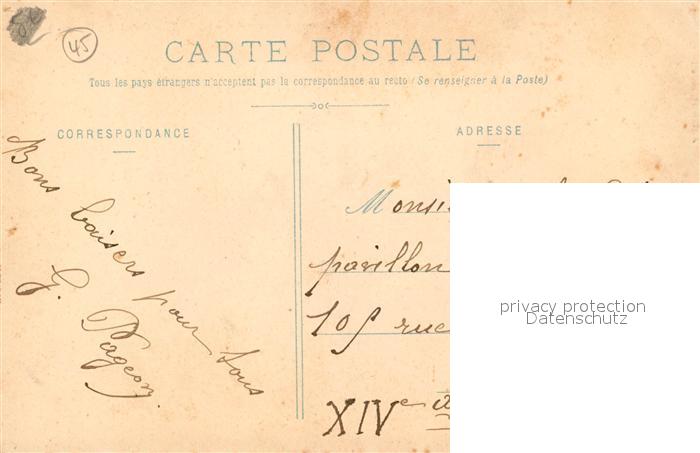 45
CARTE POSTALE
Tous les pays étrangers n'acceptent pas la correspondance au recto (Se renseigner à la Poste)
CORRESPONDANCE
ADRESSE
Bons baisers pour tous
G. Pageon
Monsi
pavillon
rue
XIVe
privacy protection
Datenschutz